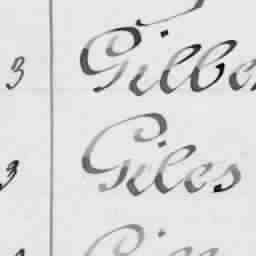 3 Gilbe
3 Giles